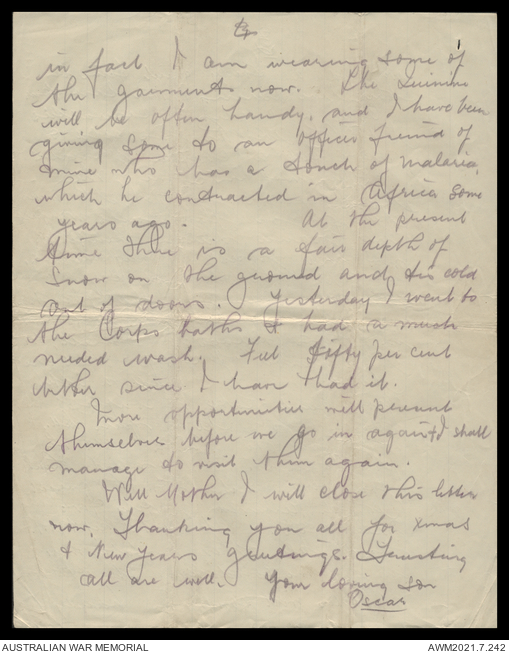 in fact I am wearing some of
the garments now. The Quinine
will be often handy, and I have been
giving some to an officer friend of
mine who has a touch of malaria,
which he contracted in Africa some
years ago. At the present
time there is a fair depth of
snow on the ground and tis cold
out of doors. Yesterday I went to
the Corps baths & had a much
needed wash. Feel fifty per cent
better since I have had it.
More opportunities will present
themselves before we go in again & I shall
manage to visit them again.
Well Mother I will close this letter
now, Thanking you all for xmas
& New Years greetings. Trusting
all are well. Your loving son
Oscar
AUSTRALIAN WAR MEMORIAL
AWM2021.7.242